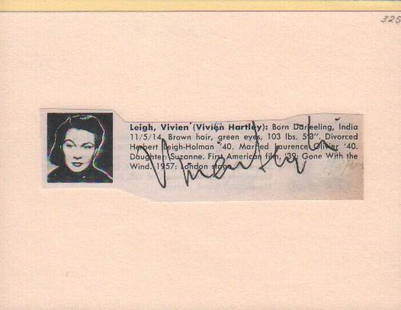 325
Leigh, Vivien (Vivien Hartley): Born Darjeeling, India
11/5/14. Brown hair, green eyes, 103 lbs. 5'3". Divorced
Herbert Leigh-Holman '40. Married Laurence Olivier '40.
Daughter: Suzanne. First American film, '39: Gone With the
Wind. 1957: London stage.